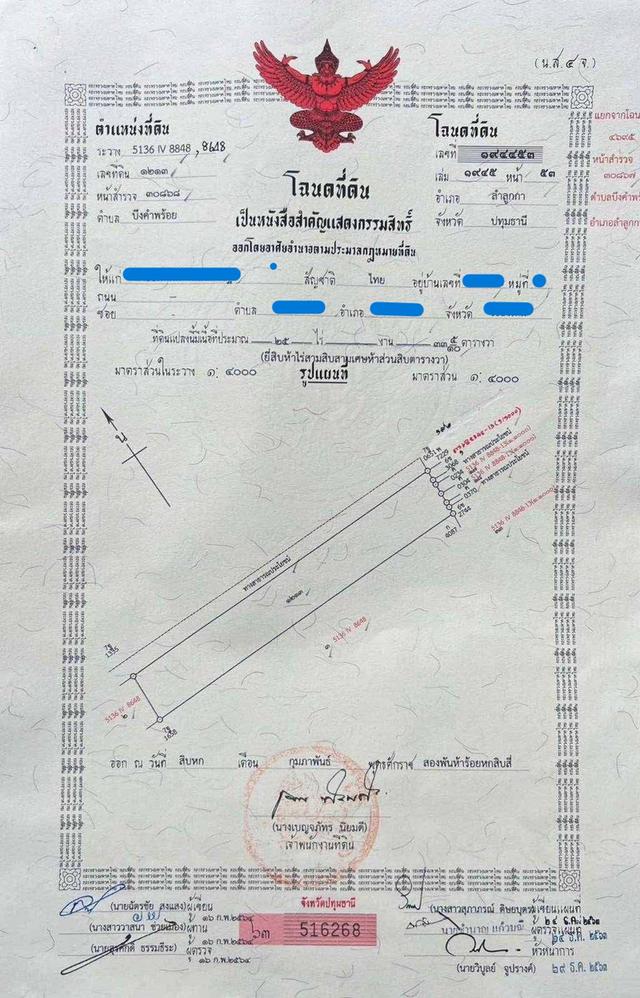 (น.ส.๔ จ.)
ตำแหน่งที่ดิน
ระวาง 5136 IV 8848 , 8648
เลขที่ดิน ๑๒๑๓
หน้าสำรวจ ๓๐๘๖๘
ตำบล บึงคำพร้อย
โฉนดที่ดิน
เลขที่ ๑๙๔๔๕๓
เล่ม ๑๙๔๕ หน้า ๕๓
อำเภอ ลำลูกกา
จังหวัด ปทุมธานี
แยกจากโฉน
๔๖๙๕
หน้าสำรวจ
๓๐๘๖๗
ตำบลบึงคำพร้
อำเภอลำลูกก
โฉนดที่ดิน
เป็นหนังสือสำคัญแสดงกรรมสิทธิ์
ออกโดยอาศัยอำนาจตามประมวลกฎหมายที่ดิน
ให้แก่ สัญชาติ ไทย อยู่บ้านเลขที่ หมู่ที่
ถนน -
ซอย - ตำบล อำเภอ จังหวัด
ที่ดินแปลงนี้มีเนื้อที่ประมาณ ๒๕ ไร่ - งาน ๓๓ ๕/๑๐ ตารางวา
(ยี่สิบห้าไร่สามสิบสามเศษห้าส่วนสิบตารางวา)
มาตราส่วนในระวาง ๑: ๔๐๐๐ รูปแผนที่ มาตราส่วน ๑: ๔๐๐๐
น
ทางสาธารณประโยชน์
5136 IV 8848-13(๑:๒๐๐๐)
ทางสาธารณประโยชน์
5136 IV 8848-13(๑:๒๐๐๐)
7229
3068
0504
0370
2744
4087
ทางสาธารณประโยชน์
๑๒๑๓
๑ 5136 IV 8648
1335
5136 IV 8648
๒
1658
ออก ณ วันที่ สิบหก เดือน กุมภาพันธ์ พุทธศักราช สองพันห้าร้อยหกสิบสี่
(นางเบญจภัทร นิยมดี)
เจ้าพนักงานที่ดิน
จังหวัดปทุมธานี
๖๓ 516268
(นายฉัตรชัย สุงแสง) ผู้เขียน
๑๖ ก.พ.๒๕๖๔
(นางสาววาสนา ช่วยเมือง) ผู้ทาน
๑๖ ก.พ.๒๕๖๔
(นายสุรศักดิ์ ธรรมธีระ) ผู้ตรวจ
๑๖ ก.พ.๒๕๖๔
(นางสาวสุภาภรณ์ ดิษยบุตร) ผู้เขียนแผนที่
๒๔ ธ.ค. ๒๕๖๓
ผู้ตรวจแผนที่
๒๔ ธ.ค. ๒๕๖๓
หัวหน้าการ
(นายวิบูลย์ จูปรางค์) ๒๙ ธ.ค. ๒๕๖๓